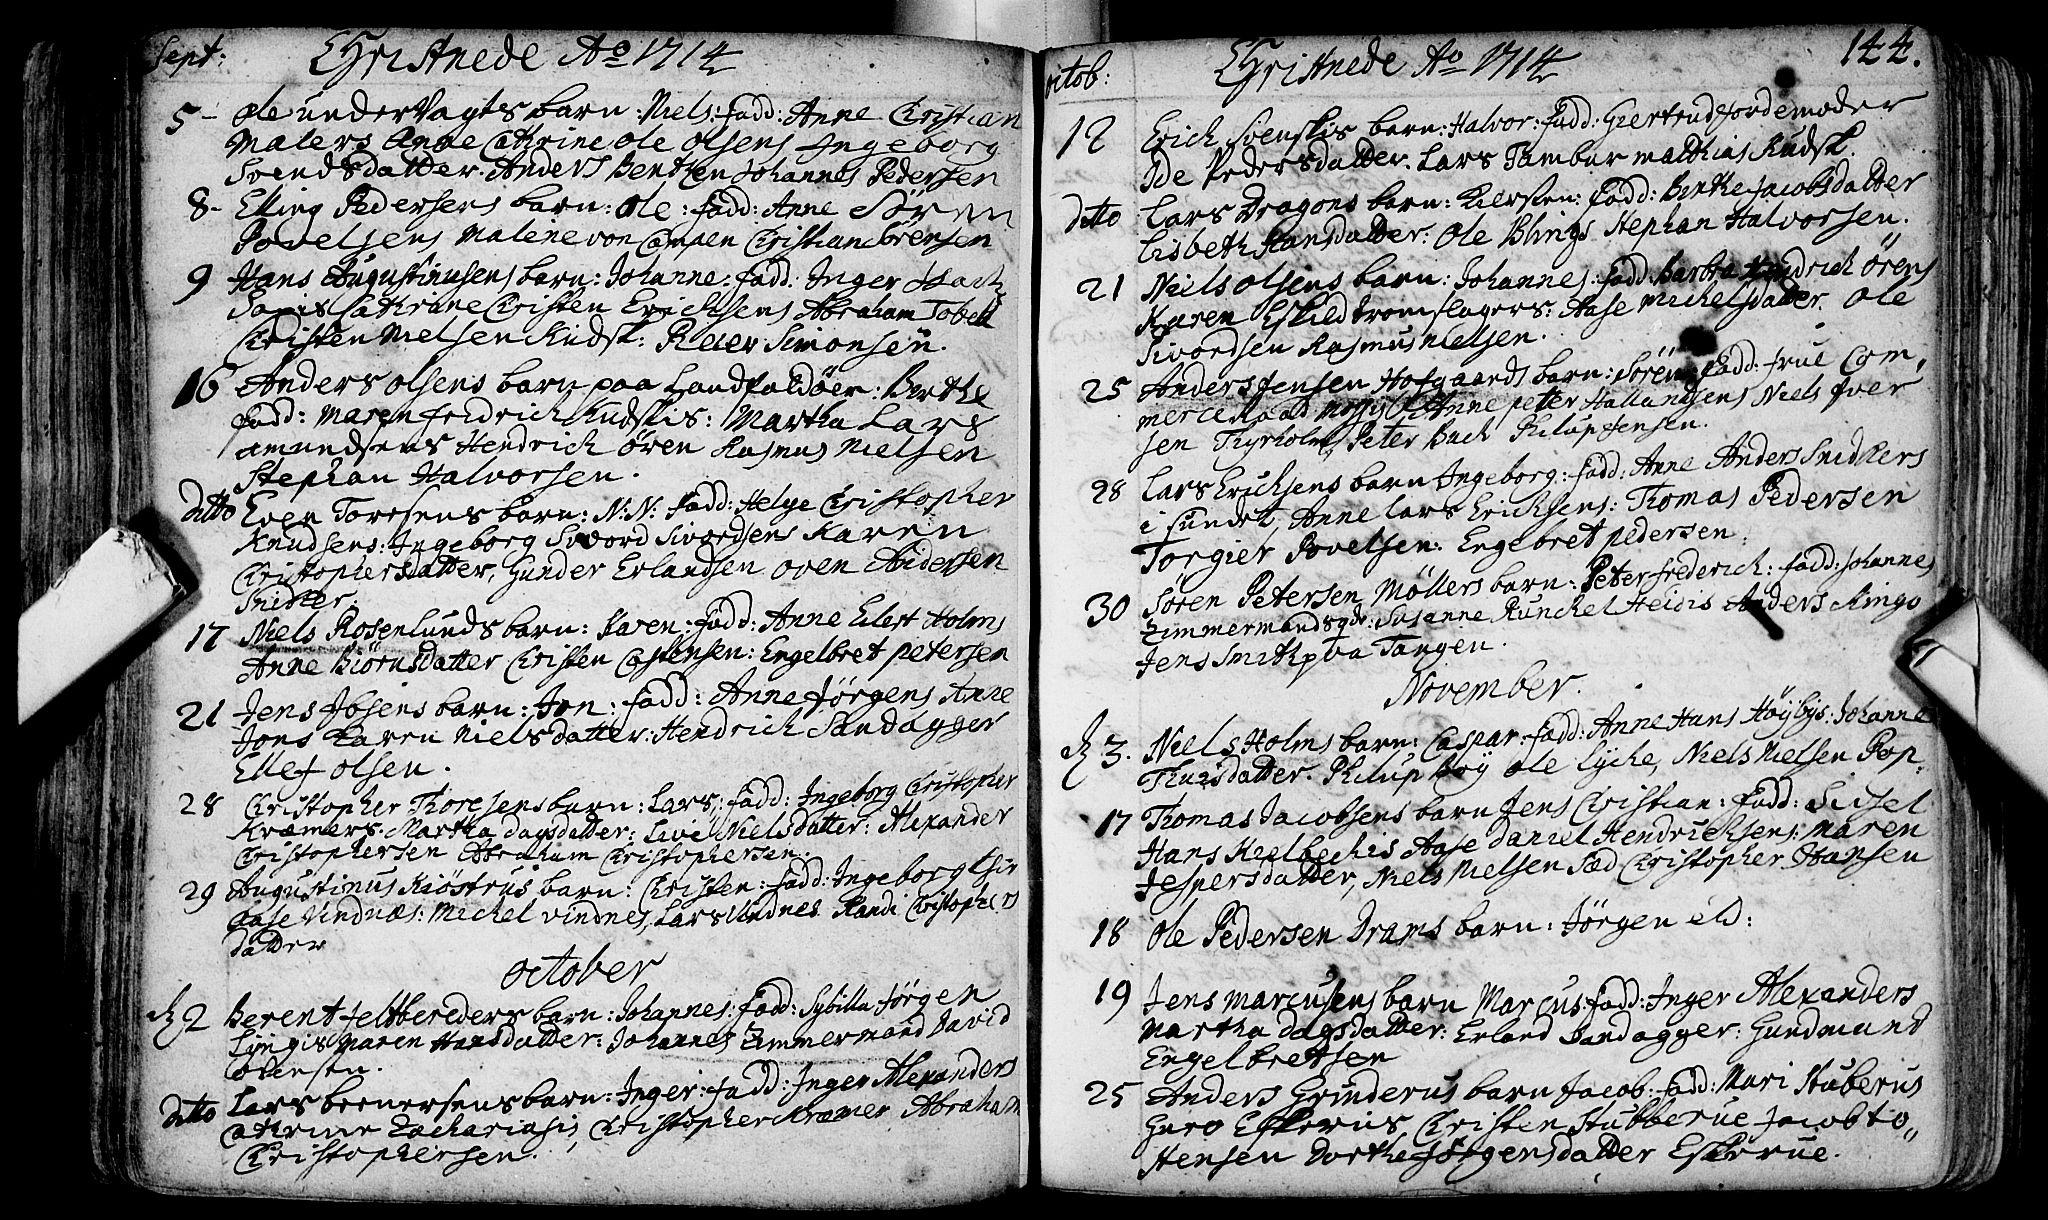 Sept: Christnede Ao 1714
5 - Ole undervagts barn: Niels: fadd: Anne Christian
Malers Anne Cathrine Ole Olsens Ingeborg
Svendsdatter. Anders Bentzen Johannes Pedersen
8 - Elling Pedersens barn: Ole: fadd: Anne Sören
Povelsens Malene von Campen Christian Sörensen
9 Hans Augustinusens barn: Johanne: fadd: Inger
Cathrine Christen Erichsens Abraham Tobell
Christen Nielsen Kudsk: Peder Simonsen.
16 Anders Olsens barn paa Landfaldöen: Berthe
fadd: Maren Fridrich Kudskis: Martha Lars
Amundsens Hendrich Ören Rasmus Nielsen
Stephan Halvorsen.
ditto Even Toresens barn: N:N: fadd: Helge Christopher
Knudsens: Ingeborg Sivord Sivordsens Karen
Christophersdatter, Gunder Erlandsen Oven Andersen
Snidker.
17 Niels Rosenlunds barn: Karen: fadd: Anne Eilert Holms
Anne Biörnsdatter Christen Castensen: Engelbret Petersen
21 Jens Ibsens barn: Jon: fadd: Anne Jörgens Anne
Jons Karen Nielsdatter: Hendrich Sandagger
Ellef Olsen.
28 Christopher Thoresens barn: Lars: fadd: Ingeborg Christopher
Kræmers Martha Dagsdatter: Live Nielsdatter: Alexander
Christophersen Abraham Christophersen.
29 Augustinus Kiöstrus barn: Christen: fadd: Ingeborg
Aase Vindnæs: Michel Vindnes, Lars Vindnes Randi Christophers
datter
October
2 Berent Feltbereders barn: Johannes: fadd: Sybilla Jörgen
Lyngis Maren Hansdatter: Johannes Zimmermand David
Ovensen.
ditto Lars barn: Inger: fadd: Inger Alexanders
Cathrine Zachariasis, Christopher Kræmer Abraham
Christophersen.
Octob: Christnede Ao 1714 144.
12 Erich Svenskis barn: Halvor: fadd: Giertrud Jordemoder
Ide Pedersdatter. Lars Tambur Matthias Kudsk.
ditto Lars Dragons barn: Kiersten: fadd: Benthe Jacobsdatter
Lisbeth Hansdatter: Ole Blings Stephan Halvorsen.
21 Niels Olsens barn: Johannes: fadd: Barbra Hendrich Örens
Karen Eskild tromslagers: Aase Michelsdatter. Ole
Sivordsen Rasmus Nielsen.
25 Anders Jensen Hofgaards barn: Sören: fadd: Frue Com,
merce Raad Anne Peter Hallandsens Niels Iver
sen Thyrholm, Peter Bach Philip Jensen.
28 Lars Erichsens barn Ingeborg: fadd: Anne Anders Snidkers
i Sundet, Anne Lars Erichsens: Thomas Pedersen
Torgier Povelsen: Engebret Pedersen.
30 Sören Petersen Möllers barn: Peter Frederich: fadd: Johannes
Zimmermands Susanne Runckel Heidis Anders Ringo
Jens Smith paa Tangen.
November.
3. Niels Holms barn: Caspar: fadd: Anne Hans Höybys: Johanne
Thuesdatter. Philip Ole Lyche, Niels Nielsen Pop.
17 Thomas Jacobsens barn Jens Christian: fadd: Sidsel
Hans Kielbechis Aase Daniel Hendrichsens: Maren
Jespersdatter, Niels Nielsen Sæd Christopher Hansen
18 Ole Pedersen Drams barn: Jörgen
19 Jens Marcusens barn Marcus: fadd: Inger Alexanders
Martha Dagsdatter: Erland Sandagger: Gundmund
Engelbretsen
25 Anders Grinderus barn Jacob: fadd: Mari Stuberus
Guro Eskerus Christen Stubberue Jacob to,,
stensen Dorthe Jörgensdatter Eskerue.